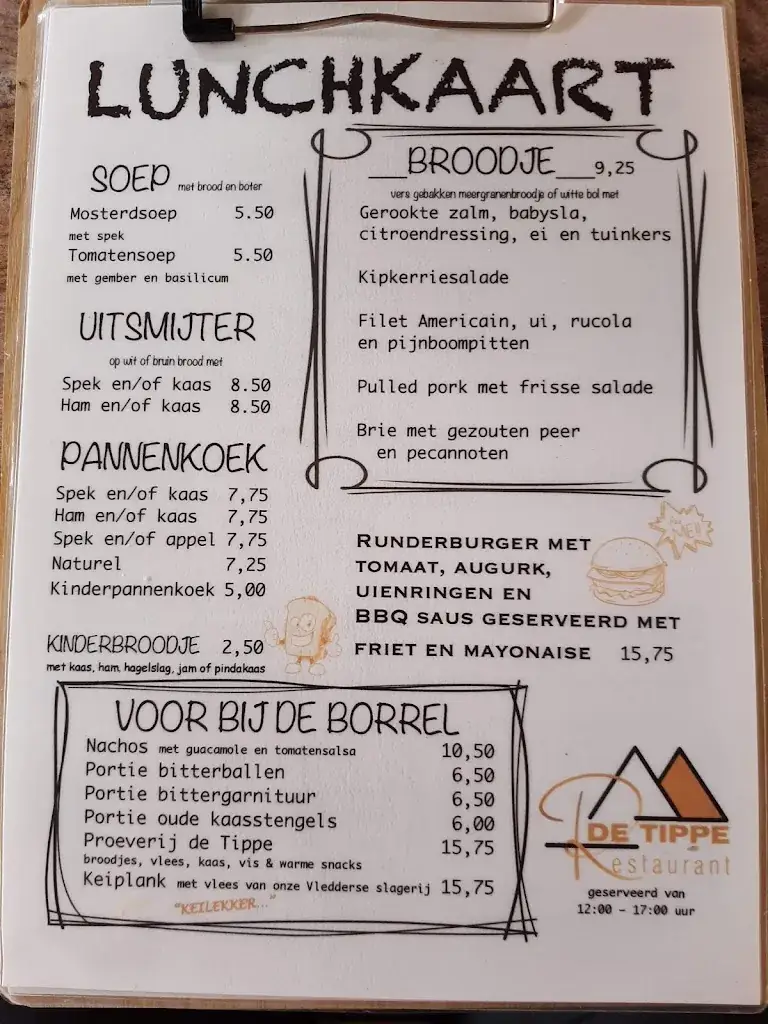 LUNCHKAART
SOEP met brood en boter
Mosterdsoep 5.50
met spek
Tomatensoep 5.50
met gember en basilicum
UITSMIJTER
op wit of bruin brood met
Spek en/of kaas 8.50
Ham en/of kaas 8.50
PANNENKOEK
Spek en/of kaas 7,75
Ham en/of kaas 7,75
Spek en/of appel 7,75
Naturel 7,25
Kinderpannenkoek 5,00
KINDERBROODJE 2,50
met kaas, ham, hagelslag, jam of pindakaas
BROODJE 9,25
vers gebakken meergranenbroodje of witte bol met
Gerookte zalm, babysla,
citroendressing, ei en tuinkers
Kipkerriesalade
Filet Americain, ui, rucola
en pijnboompitten
Pulled pork met frisse salade
Brie met gezouten peer
en pecannoten
RUNDERBURGER MET
TOMAAT, AUGURK,
UIENRINGEN EN
BBQ SAUS GESERVEERD MET
FRIET EN MAYONAISE 15,75
VOOR BIJ DE BORREL
Nachos met guacamole en tomatensalsa 10,50
Portie bitterballen 6,50
Portie bittergarnituur 6,50
Portie oude kaasstengels 6,00
Proeverij de Tippe 15,75
broodjes, vlees, kaas, vis & warme snacks
Keiplank met vlees van onze Vledderse slagerij 15,75
"KEILEKKER..."
DE TIPPE
Restaurant
geserveerd van
12:00 - 17:00 uur